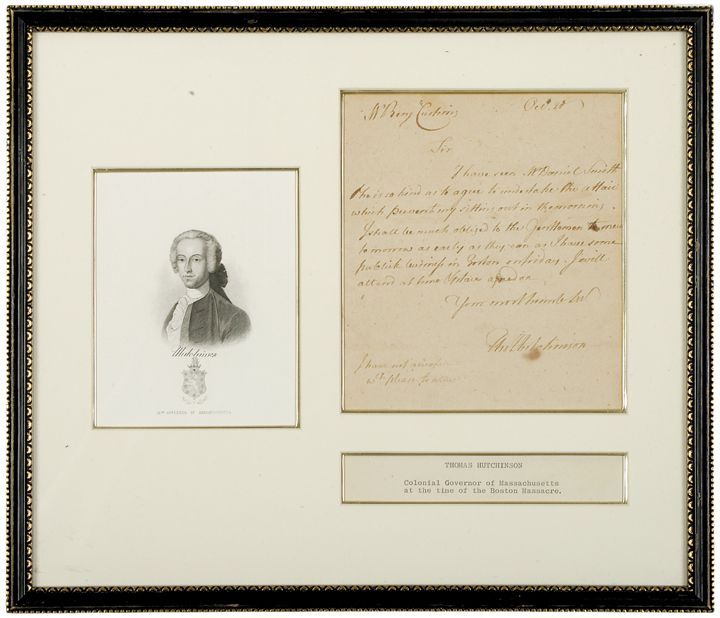 Mr Benj Cushing Oct. 28
Sir
I have seen Mr Daniel Smith
he is so kind as to agree to undertake the affair
which prevents my sitting out in the morning.
I shall be much obliged to the Gentlemen to meet
tomorrow as early as they can as I have some
publick business in Boston on friday. I will
attend at time & place agreed on
Your most humble Servt
Tho Hutchinson
I have not
Hutchinson
GOVERNOR OF MASSACHUSETTS
THOMAS HUTCHINSON
Colonial Governor of Massachusetts
at the time of the Boston Massacre.